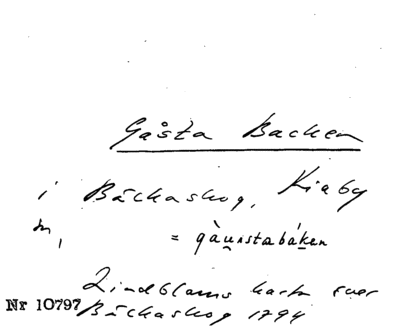 Gåsta Backen
i Bäckaskog, Kiaby
= gàunstabáken
Lindbloms karta över
Nr 10797 Bäckaskog 1794